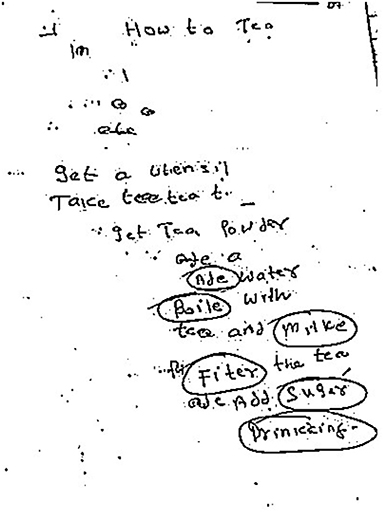 How to Tea
Im
get a utensil
Take tea t
get Tea Powder
a
Ade water
Boile with
tea and Milke
Fiter the tea
Add Suger
Drinicing